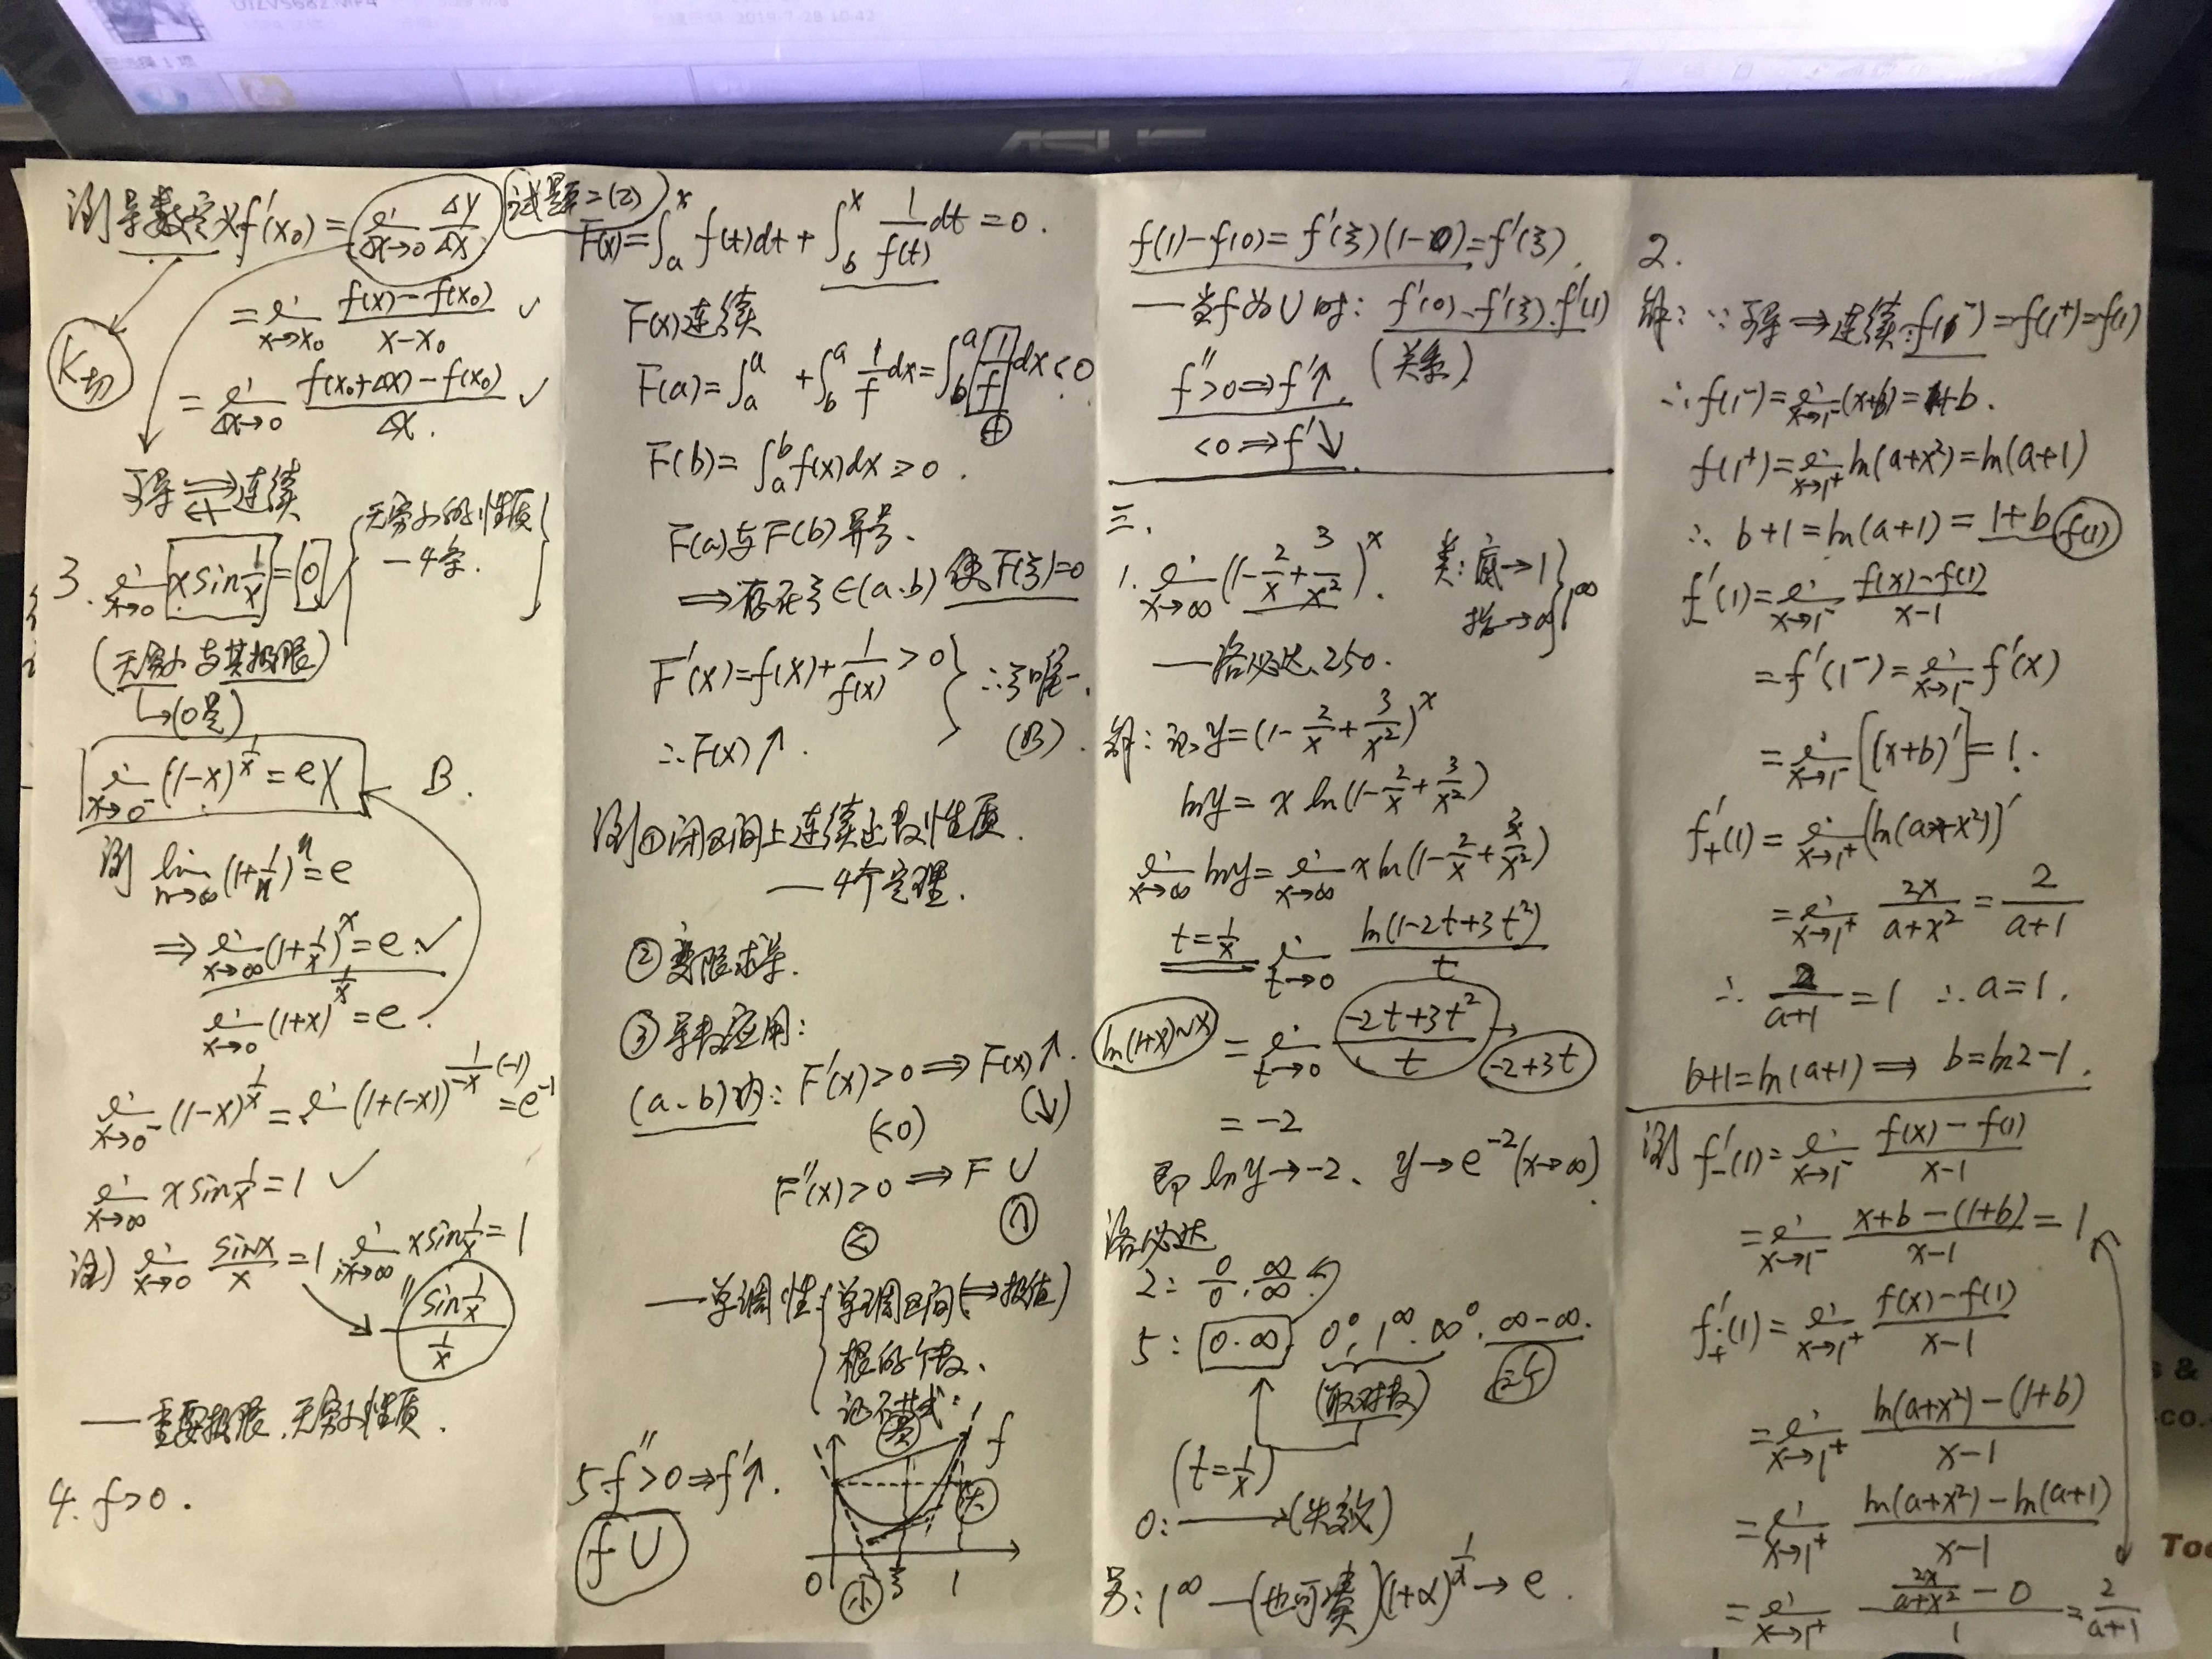 2019-7-28 10:42
ASUS
测 导数定义 f'(x₀) = lim Δx→0 Δy/Δx
= lim x→x₀ (f(x)-f(x₀))/(x-x₀) ✓
K切
= lim Δx→0 (f(x₀+Δx)-f(x₀))/Δx ✓
可导 ⇒ 连续
⇍
无穷小的性质
—4条.
3. lim x→0 x sin 1/x = 0
(无穷小与其极限)
↳(0是)
lim x→0⁻ (1-x)^(1/x) = e ✗ B.
测 lim n→∞ (1+1/n)^n = e
⇒ lim x→∞ (1+1/x)^x = e ✓
lim x→0 (1+x)^(1/x) = e.
lim x→0⁻ (1-x)^(1/x) = lim (1+(-x))^(1/(-x)·(-1)) = e⁻¹
lim x→∞ x sin 1/x = 1 ✓
注) lim x→0 sinx/x = 1; lim x→∞ x sin 1/x = 1
" (sin 1/x)/(1/x)
—重要极限、无穷小性质.
4. f>0.
试题二(2)
F(x) = ∫ₐˣ f(t)dt + ∫_bˣ 1/f(t) dt = 0.
F(x)连续
F(a) = ∫ₐᵃ + ∫_bᵃ 1/f dx = ∫_bᵃ 1/f dx < 0
⊕
F(b) = ∫ₐᵇ f(x)dx > 0.
F(a)与F(b)异号.
⇒ 存在ξ∈(a、b) 使F(ξ)=0
F'(x) = f(x) + 1/f(x) > 0 } ∴ξ唯一.
∴F(x)↑. (B).
测①闭区间上连续函数性质.
—4个定理.
②变限求导.
③导数应用:
(a、b)内: F'(x)>0 ⇒ F(x)↑.
(<0) (↓)
F''(x)>0 ⇒ F ∪
< ∩
—单调性 { 单调区间(⇒极值)
根的个数、
证不等式:
5. f''>0 ⇒ f'↑.
f ∪
f
大
0 小 ξ 1
f(1)-f(0) = f'(ξ)(1-0) = f'(ξ).
—当f为∪时: f'(0)、f'(ξ)、f'(1)
(关系)
f''>0 ⇒ f'↑
<0 ⇒ f'↓.
三.
1. lim x→∞ (1-2/x+3/x²)^x. 类: 底→1
指→∞ } 1^∞
—洛必达、250.
解: 记 y = (1-2/x+3/x²)^x
lny = x ln(1-2/x+3/x²)
lim x→∞ lny = lim x→∞ x ln(1-2/x+3/x²)
t=1/x lim t→0 ln(1-2t+3t²)/t
ln(1+x)~x = lim t→0 (-2t+3t²)/t → -2+3t
= -2
即 lny→-2、 y→e⁻²(x→∞)
洛必达
2: 0/0、∞/∞.
5: 0·∞ 0⁰、1^∞、∞⁰、∞-∞.
(取对数)
(t=1/x)
0: ⟶(失效)
另: 1^∞ —(也可凑)(1+α)^(1/α) → e.
2.
解: ∵可导⇒连续∴f(1⁻) = f(1⁺) = f(1)
∴f(1⁻) = lim x→1⁻ (x+b) = 1+b.
f(1⁺) = lim x→1⁺ ln(a+x²) = ln(a+1)
∴ b+1 = ln(a+1) = 1+b f(1)
f'₋(1) = lim x→1⁻ (f(x)-f(1))/(x-1)
= f'(1⁻) = lim x→1⁻ f'(x)
= lim x→1⁻ [(x+b)'] = 1.
f'₊(1) = lim x→1⁺ (ln(a+x²))'
= lim x→1⁺ 2x/(a+x²) = 2/(a+1)
∴ 2/(a+1) = 1 ∴a=1.
b+1 = ln(a+1) ⇒ b = ln2-1.
测 f'₋(1) = lim x→1⁻ (f(x)-f(1))/(x-1)
= lim x→1⁻ (x+b-(1+b))/(x-1) = 1
f'₊(1) = lim x→1⁺ (f(x)-f(1))/(x-1)
= lim x→1⁺ (ln(a+x²)-(1+b))/(x-1)
= lim x→1⁺ (ln(a+x²)-ln(a+1))/(x-1)
= lim x→1⁺ (2x/(a+x²) - 0)/1 = 2/(a+1)